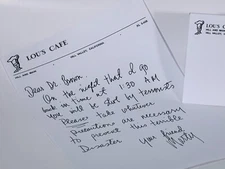 LOU'S CAFE
HILL VALLEY, CALIFORNIA
Dear Dr. Brown,
On the night that I go
back in time at 1:30 AM
you will be shot by terrorists
Please take whatever
precautions are necessary
to prevent this terrible
Disaster
Your friend,
Marty
LOU'S CAFE